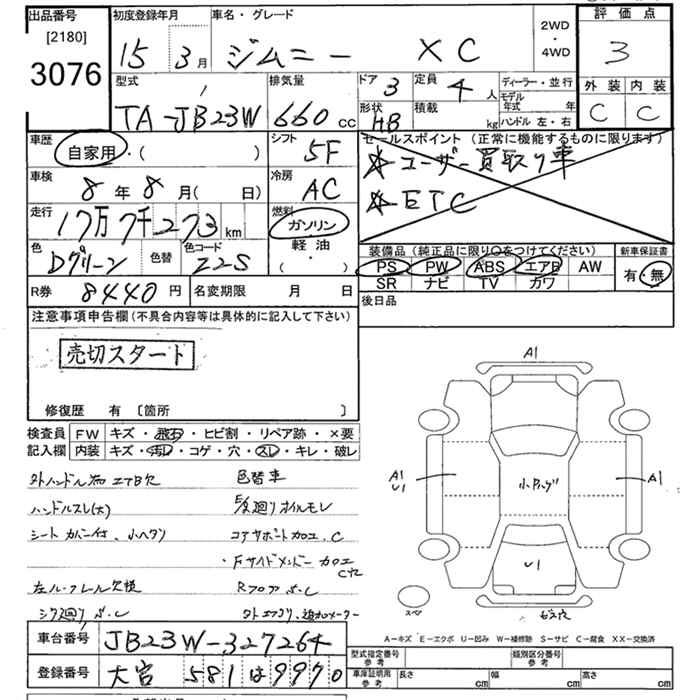 出品番号
[2180]
3076
初度登録年月
15 3月
車名・グレード
ジムニー XC
2WD
・
4WD
評価点
3
外装 内装
C C
型式
TA-JB23W
排気量
660cc
ドア 3
定員 4人
形状 HB
積載 kg
ディーラー・並行
モデル年式 年
ハンドル 左・右
車歴
自家用・( )
シフト
5F
車検
8年8月( 日)
冷房
AC
走行
17万7千273km
燃料
ガソリン
軽油
( ・ )
色
Dグリーン
色替
色コード
Z2S
セールスポイント(正常に機能するものに限ります)
☆ユーザー買取り車
☆ETC
装備品(純正品に限り○をつけてください)
PS PW ABS エアB AW
SR ナビ TV カワ
新車保証書
有・無
R券 8440円
名変期限 月 日
後日品
注意事項申告欄(不具合内容等は具体的に記入して下さい)
売切スタート
修復歴 有 [箇所 ]
検査員記入欄
FW キズ・飛石・ヒビ割・リペア跡・×要
内装 キズ・汚れ・コゲ・穴・スレ・キレ・破レ
色替車
ハンドルスレ(大)
廻りオイルモレ
シートカバー付、小ヘタリ
コアサポート加工、C
・Fサイドメンバー加工
左ル・フレール欠損
車台番号 JB23W-327264
登録番号 大宮 581 は 9970
A1
A1
U1
A1
U1
スペ
A-キズ E-エクボ U-凹み W-補修跡 S-サビ C-腐食 XX-交換済
型式指定番号
参考
類別区分番号
参考
車庫証明用
参考
長さ cm
幅 cm
高さ cm